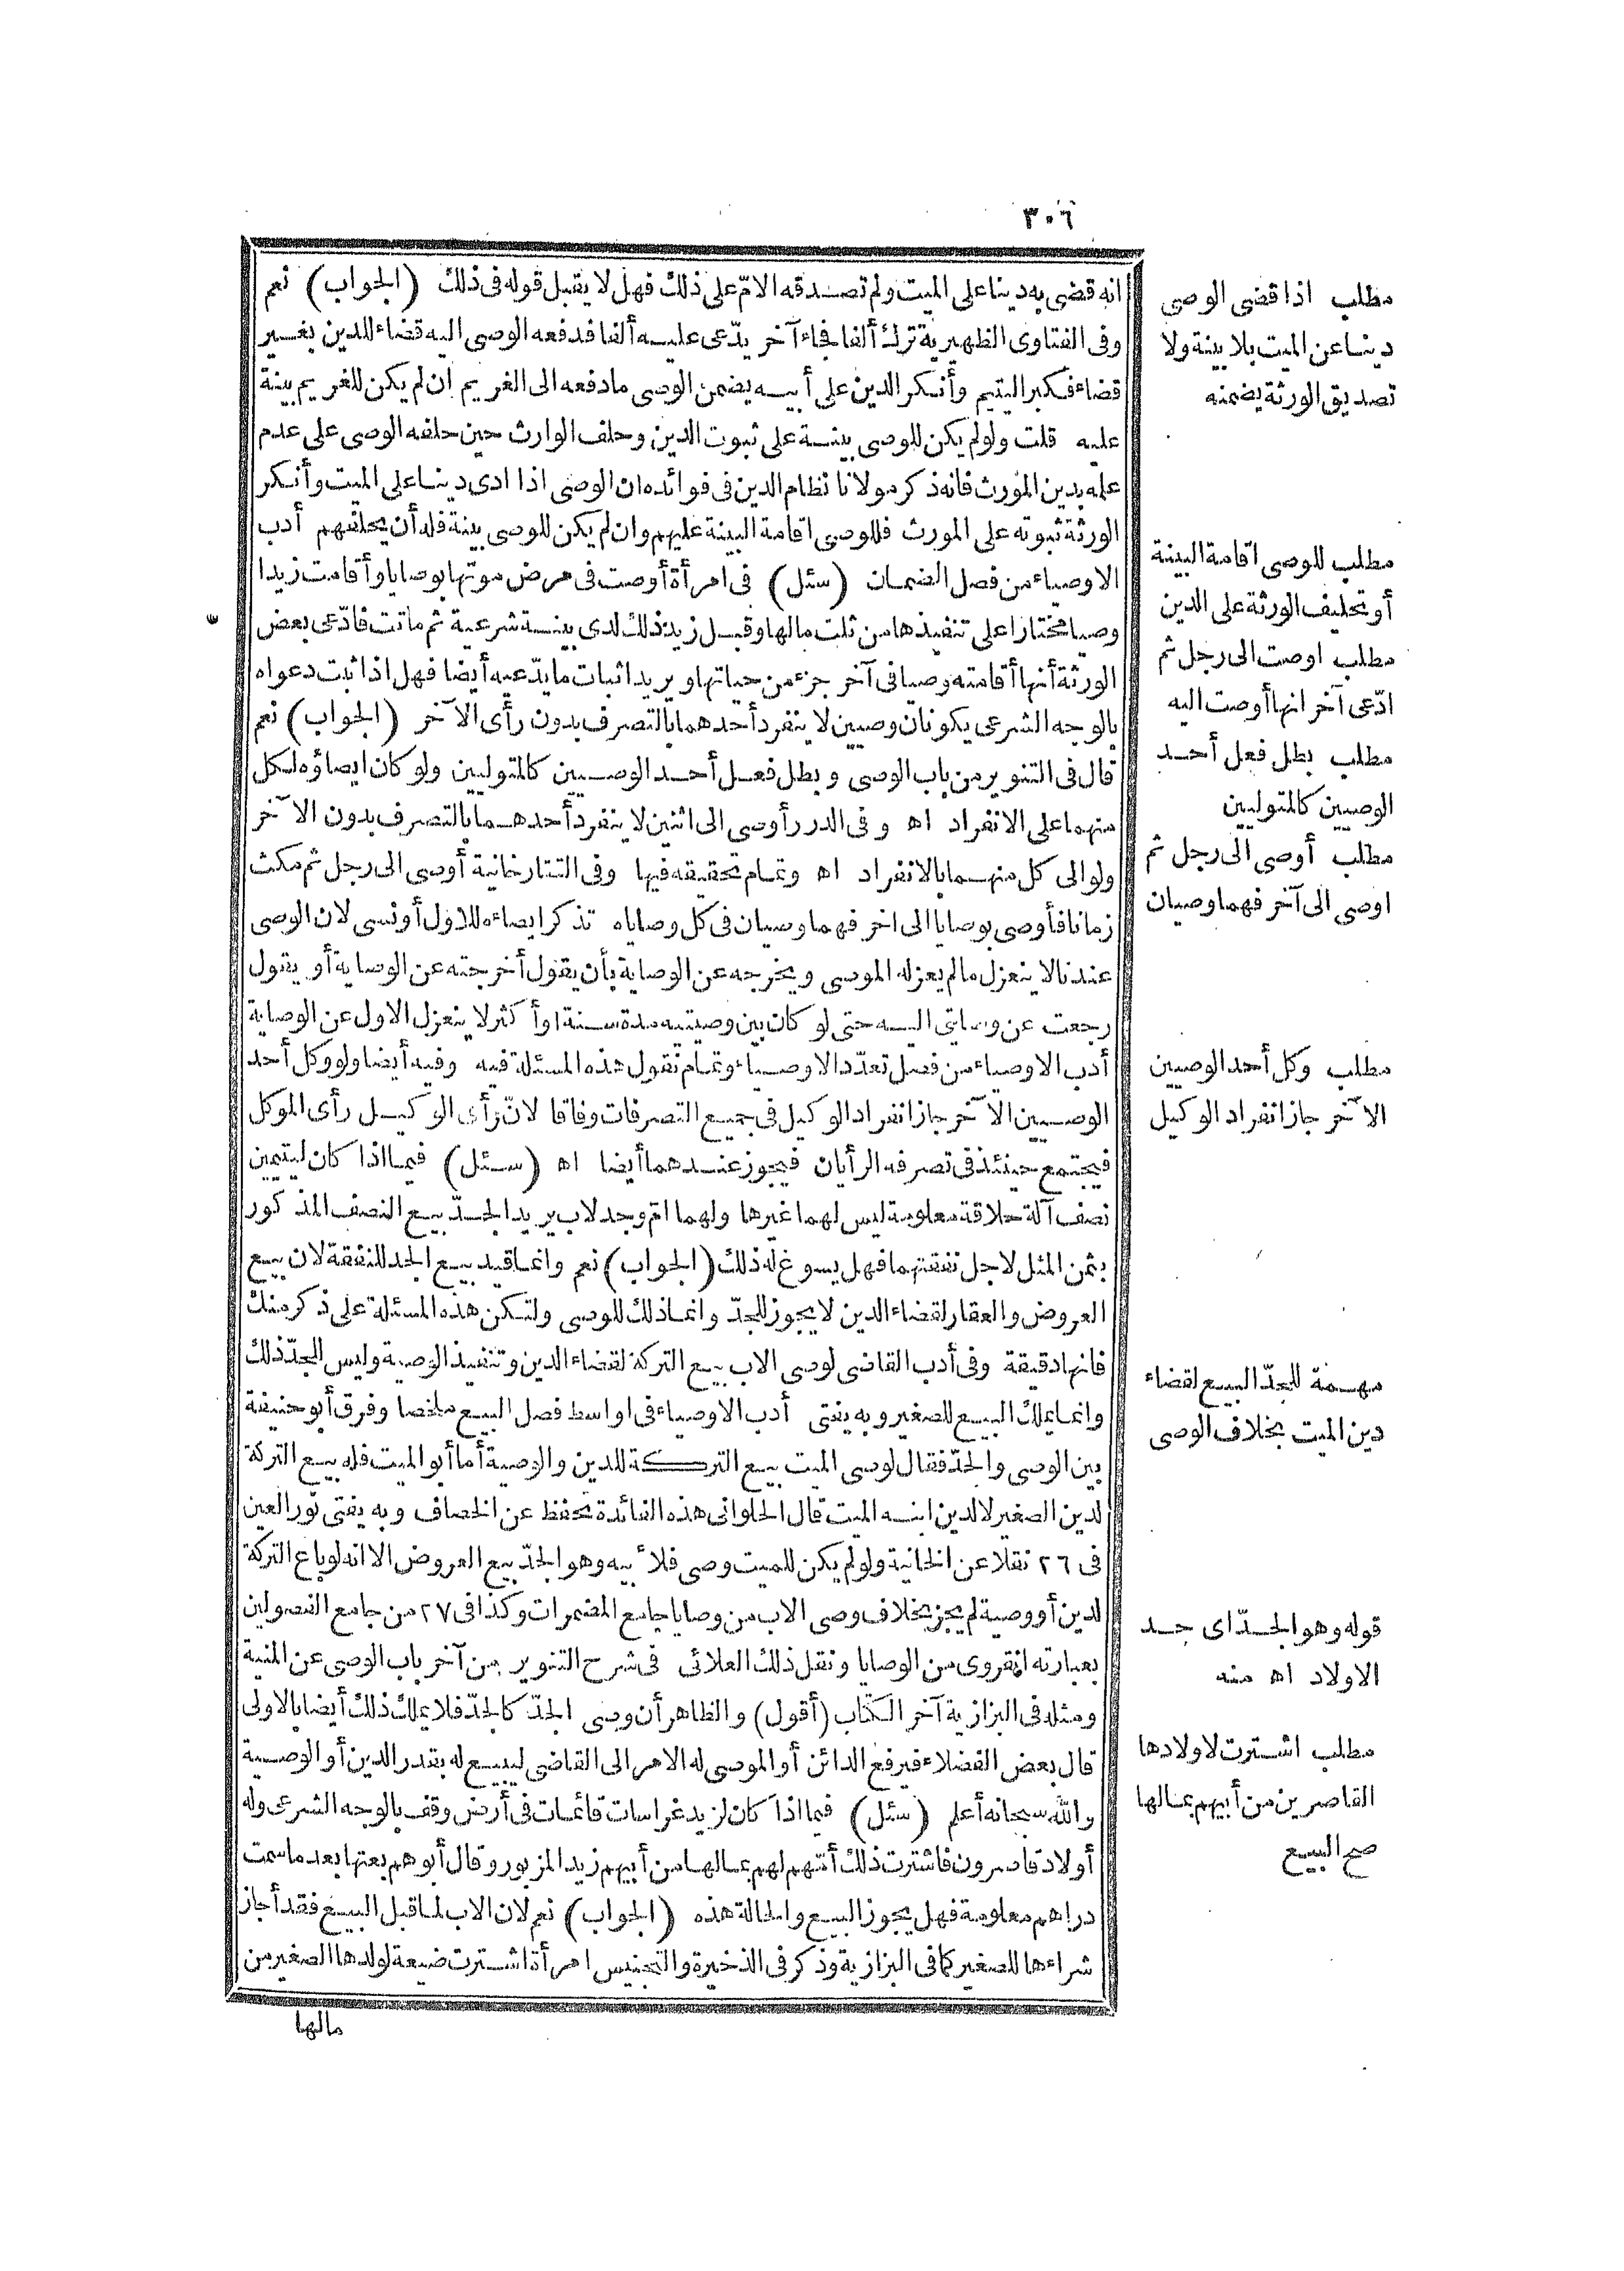 ٣٠٦
انه قضى به دينا على الميت ولم تصدقه الامّ على ذلك فهل لا يقبل قوله فى ذلك (الجواب) نعم
وفى الفتاوى الظهيرية ترك ألفا فجاء آخر يدّعى عليه ألفا فدفعه الوصى اليه قضاء للدين بغير
قضاء فكبر اليتيم وأنكر الدين على أبيه يضمن الوصى ما دفعه الى الغريم ان لم يكن للغريم بينة
عليه قلت ولو لم يكن للوصى بينة على ثبوت الدين وحلف الوارث حين حلفه الوصى على عدم
علمه بدين المورث فانه ذكر مولانا نظام الدين فى فوائده ان الوصى اذا ادى دينا على الميت وأنكر
الورثة ثبوته على المورث فللوصى اقامة البينة عليهم وان لم يكن للوصى بينة فله أن يحلفهم أدب
الاوصياء من فصل الضمان (سئل) فى امرأة أوصت فى مرض موتها بوصايا وأقامت زيدا
وصيا مختارا على تنفيذها من ثلث مالها وقبل زيد ذلك لدى بينة شرعية ثم ماتت فادّعى بعض
الورثة أنها أقامته وصيا فى آخر جزء من حياتها ويريد اثبات ما يدّعيه أيضا فهل اذا ثبت دعواه
بالوجه الشرعى يكونان وصيين لا ينفرد أحدهما بالتصرف بدون رأى الآخر (الجواب) نعم
قال فى التنوير من باب الوصى وبطل فعل أحد الوصيين كالمتوليين ولو كان ايصاؤه لكل
منهما على الانفراد اه وفى الدرر أوصى الى اثنين لا ينفرد أحدهما بالتصرف بدون الآخر
ولو الى كل منهما بالانفراد اه وتمام تحقيقه فيها وفى التتارخانية أوصى الى رجل ثم مكث
زمانا فأوصى بوصايا الى اخر فهما وصيان فى كل وصاياه تذكر ايصاءه للاول أو نسى لان الوصى
عندنا لا ينعزل ما لم يعزله الموصى ويخرجه عن الوصاية بأن يقول أخرجته عن الوصاية أو يقول
رجعت عن وصايتى اليه حتى لو كان بين وصيتيه مدة سنة او أكثر لا ينعزل الاول عن الوصاية
أدب الاوصياء من فصل تعدّد الاوصياء وتمام نقول هذه المسئلة فيه وفيه أيضا ولو وكل أحد
الوصيين الآخر جاز انفراد الوكيل فى جميع التصرفات وفاقا لانّ رأى الوكيل رأى الموكل
فيجتمع حينئذ فى تصرفه الرأيان فيجوز عندهما أيضا اه (سئل) فيما اذا كان ليتيمين
نصف آلة حلاقة معلومة ليس لهما غيرها ولهما امّ وجد لاب يريد الجدّ بيع النصف المذكور
بثمن المثل لاجل نفقتهما فهل يسوغ له ذلك (الجواب) نعم وانما قيد بيع الجد للنفقة لان بيع
العروض والعقار لقضاء الدين لا يجوز للجدّ وانما ذلك للوصى ولتكن هذه المسئلة على ذكر منك
فانها دقيقة وفى أدب القاضى لوصى الاب بيع التركة لقضاء الدين وتنفيذ الوصية وليس للجدّ ذلك
وانما يملك البيع للصغير وبه يفتى أدب الاوصياء فى اواسط فصل البيع ملخصا وفرق أبو حنيفة
بين الوصى والجدّ فقال لوصى الميت بيع التركة للدين والوصية أما أبو الميت فله بيع التركة
لدين الصغير لا لدين ابنه الميت قال الحلوانى هذه الفائدة تحفظ عن الخصاف وبه يفتى نور العين
فى ٢٦ نقلا عن الخانية ولو لم يكن للميت وصى فلأبيه وهو الجدّ بيع العروض الا انه لو باع التركة
لدين أو وصية لم يجز بخلاف وصى الاب من وصايا جامع المضمرات وكذا فى ٢٧ من جامع الفصولين
بعبارته انقروى من الوصايا ونقل ذلك العلائى فى شرح التنوير من آخر باب الوصى عن المنية
ومثله فى البزازية آخر الكتاب (أقول) والظاهر أن وصى الجدّ كالجدّ فلا يملك ذلك أيضا بالاولى
قال بعض الفضلاء فيرفع الدائن أو الموصى له الامر الى القاضى ليبيع له بقدر الدين أو الوصية
والله سبحانه أعلم (سئل) فيما اذا كان لزيد غراسات قائمات فى أرض وقف بالوجه الشرعى وله
أولاد قاصرون فاشترت ذلك أمّهم لهم بمالها من أبيهم زيد المزبور وقال أبوهم بعتها بعد ما سمت
دراهم معلومة فهل يجوز البيع والحالة هذه (الجواب) نعم لان الاب لما قبل البيع فقد أجاز
شراءها للصغير كما فى البزازية وذكر فى الذخيرة والتجنيس امرأة اشترت ضيعة لولدها الصغير من
مالها
مطلب اذا قضى الوصى
دينا عن الميت بلا بينة ولا
تصديق الورثة يضمنه
مطلب للوصى اقامة البينة
أو تحليف الورثة على الدين
مطلب اوصت الى رجل ثم
ادّعى آخر انها أوصت اليه
مطلب بطل فعل أحد
الوصيين كالمتوليين
مطلب أوصى الى رجل ثم
اوصى الى آخر فهما وصيان
مطلب وكل أحد الوصيين
الآخر جاز انفراد الوكيل
مهمة للجدّ البيع لقضاء
دين الميت بخلاف الوصى
قوله وهو الجدّ اى جد
الاولاد اه منه
مطلب اشترت لاولادها
القاصرين من أبيهم بمالها
صح البيع